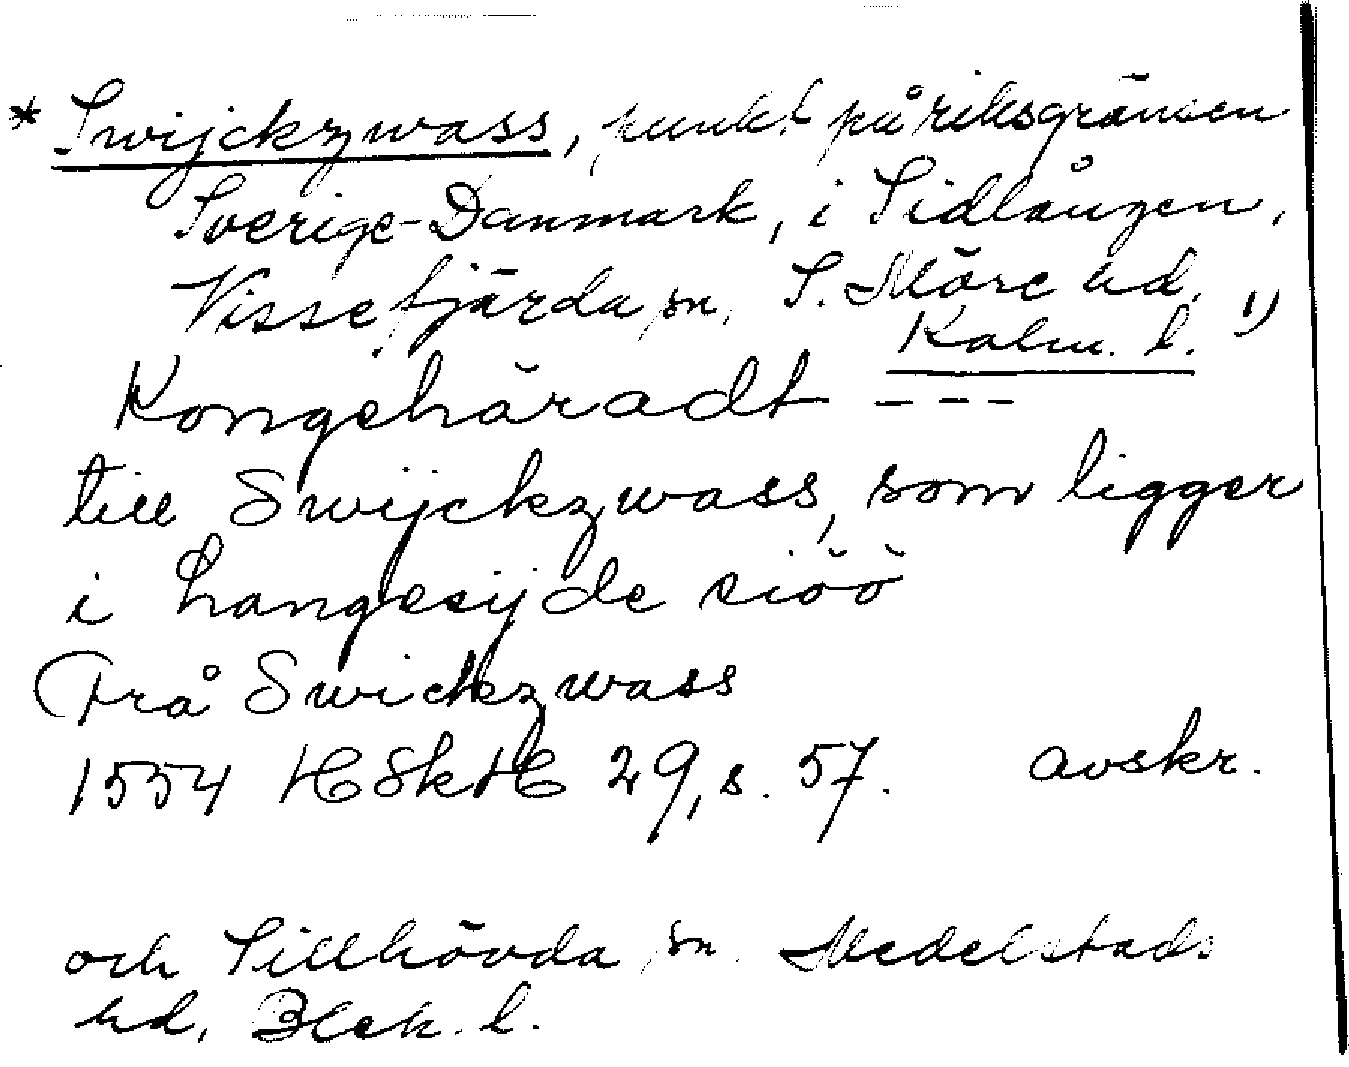 * Swijckzwass, punkt på riksgränsen
Sverige-Danmark, i Sidlången,
Vissefjärda sn, S. Möre hd, 1)
Kalm. l.
Kongehäradt ---
till Swijckzwass, som ligger
i Langesijde siöö
Frå Swickzwass
1554 HSkH 29, s. 57. avskr.
och Tillhövda sn. Medelstads
hd, Blek. l.